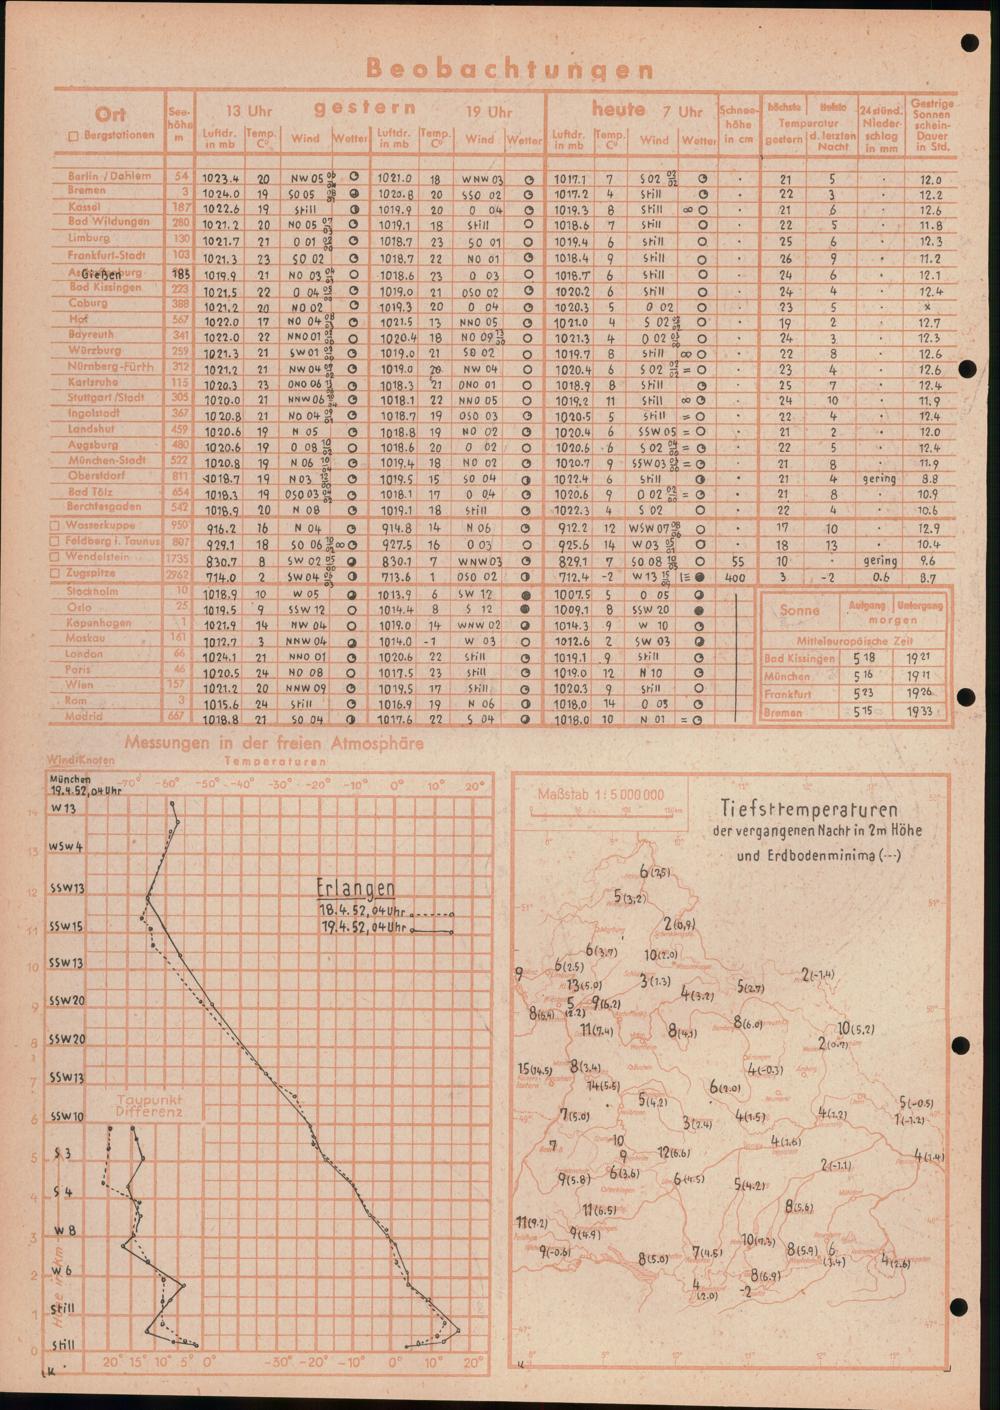 Beobachtungen
Ort
Bergstationen
See-
höhe
m
13 Uhr gestern 19 Uhr
heute 7 Uhr
Schnee-
höhe
in cm
höchste tiefste
Temperatur
gestern d. letzten
Nacht
24 stünd.
Nieder-
schlag
in mm
Gestrige
Sonnen
schein-
Dauer
in Std.
Luftdr. in mb Temp. C° Wind Wetter Luftdr. in mb Temp. C° Wind Wetter Luftdr. in mb Temp. C° Wind Wetter
Berlin / Dahlem 54 1023.4 20 NW 05 1021.0 18 WNW 03 1017.1 7 S 02 · 21 5 · 12.0
Bremen 3 1024.0 19 SO 05 1020.8 20 SSO 02 1017.2 4 still · 22 3 · 12.2
Kassel 187 1022.6 19 still 1019.9 20 O 04 1019.3 8 still ∞ · 21 6 · 12.6
Bad Wildungen 280 1021.2 20 NO 05 1019.1 18 still 1018.6 7 still · 22 5 · 11.8
Limburg 130 1021.7 21 O 01 1018.7 23 SO 01 1019.4 6 still · 25 6 · 12.3
Frankfurt-Stadt 103 1021.3 23 SO 02 1018.7 22 NO 01 1018.4 9 still · 26 9 · 11.2
Gießen 185 1019.9 21 NO 03 1018.6 23 O 03 1018.7 6 still · 24 6 · 12.1
Bad Kissingen 223 1021.5 22 O 04 1019.0 21 OSO 02 1020.2 6 still · 24 4 · 12.4
Coburg 388 1021.2 20 NO 02 1019.3 20 O 04 1020.3 5 O 02 · 23 5 · x
Hof 567 1022.0 17 NO 04 1021.5 13 NNO 05 1021.0 4 S 02 · 19 2 · 12.7
Bayreuth 341 1022.0 22 NNO 01 1020.4 18 NO 09 1021.3 4 O 02 · 24 3 · 12.3
Würzburg 259 1021.3 21 SW 01 1019.0 21 SO 02 1019.7 8 still ∞ · 22 8 · 12.6
Nürnberg-Fürth 312 1021.2 21 NW 04 1019.0 20 NW 04 1020.4 6 S 02 = · 23 4 · 12.6
Karlsruhe 115 1020.3 23 ONO 06 1018.3 21 ONO 01 1018.9 8 still · 25 7 · 12.4
Stuttgart/Stadt 305 1020.0 21 NNW 06 1018.1 22 NNO 05 1019.2 11 still ∞ · 24 10 · 11.9
Ingolstadt 367 1020.8 21 NO 04 1018.7 19 OSO 03 1020.5 5 still = · 22 4 · 12.4
Landshut 459 1020.6 19 N 05 1018.8 19 NO 02 1020.4 6 SSW 05 = · 21 2 · 12.0
Augsburg 480 1020.6 19 O 08 1018.6 20 O 02 1020.6 6 S 02 = · 22 5 · 12.4
München-Stadt 522 1020.8 19 N 06 1019.4 18 NO 02 1020.7 9 SSW 03 = · 21 8 · 11.9
Oberstdorf 811 1018.7 19 N 03 1019.5 15 SO 04 1022.4 6 still · 21 4 gering 8.8
Bad Tölz 654 1018.3 19 OSO 03 1018.1 17 O 04 1020.6 9 O 02 = · 21 8 · 10.9
Berchtesgaden 542 1018.9 20 N 08 1019.1 18 still 1022.3 4 S 02 · 22 4 · 10.6
Wasserkuppe 950 916.2 16 N 04 914.8 14 N 06 912.2 12 WSW 07 · 17 10 · 12.9
Feldberg i. Taunus 807 929.1 18 SO 06 ∞ 927.5 16 O 03 925.6 14 W 03 · 18 13 · 10.4
Wendelstein 1735 830.7 8 SW 02 830.1 7 WNW 03 829.1 7 SO 08 55 10 · gering 9.6
Zugspitze 2962 714.0 2 SW 04 713.6 1 OSO 02 712.4 -2 W 13 400 3 -2 0.6 8.7
Stockholm 10 1018.9 10 W 05 1013.9 6 SW 12 1007.5 5 O 05
Oslo 25 1019.5 9 SSW 12 1014.4 8 S 12 1009.1 8 SSW 20
Kopenhagen 1 1021.9 14 NW 04 1019.0 14 WNW 02 1014.3 9 W 10
Moskau 161 1012.7 3 NNW 04 1014.0 -1 W 03 1012.6 2 SW 03
London 66 1024.1 21 NNO 01 1020.6 22 still 1019.1 9 still
Paris 46 1020.5 24 NO 08 1017.5 23 still 1019.0 12 N 10
Wien 157 1021.2 20 NNW 09 1019.5 17 still 1020.3 9 still
Rom 3 1015.6 24 still 1016.9 19 N 06 1018.0 14 O 03
Madrid 667 1018.8 21 SO 04 1017.6 22 S 04 1018.0 10 N 01 =
Sonne Aufgang Untergang
morgen
Mitteleuropäische Zeit
Bad Kissingen 5 18 19 21
München 5 16 19 11
Frankfurt 5 23 19 26
Bremen 5 15 19 33
Messungen in der freien Atmosphäre
Wind/Knoten Temperaturen
München
19.4.52, 04 Uhr
-70° -60° -50° -40° -30° -20° -10° 0° 10° 20°
W 13
WSW 4
SSW 13
SSW 15
SSW 13
SSW 20
SSW 20
SSW 13
SSW 10
S 3
S 4
W 8
W 6
still
still
14
13
12
11
10
9
8
7
6
5
4
3
2
1
0
Höhe in km
Erlangen
18.4.52, 04 Uhr
19.4.52, 04 Uhr
Taupunkt
Differenz
20° 15° 10° 5° 0° -30° -20° -10° 0° 10° 20°
Maßstab 1:5 000 000
Tiefsttemperaturen
der vergangenen Nacht in 2m Höhe
und Erdbodenminima (---)
6(2,5)
5(3,2)
2(0,9)
6(3.7)
10(2.0)
9
6(2.5)
13(5.0)
3(1.3)
4(3.2)
5(2.7)
2(-1.4)
5(2.2)
9(6.2)
11(7.4)
8(4,1)
8(6.0)
10(5,2)
15(14.5)
8(3.4)
4(-0.3)
14(5.5)
6(2.0)
5(4,2)
5(-0.5)
1(-1.2)
7(5.0)
3(2.4)
4(1.5)
4(1.2)
7
10
9
12(6.6)
4(1.6)
4(1.4)
9(5.8)
6(3.6)
6(4.5)
5(4.2)
2(-1.1)
8(5,6)
11(6.5)
11(9.2)
9(4.9)
9(-0.6)
8(5.0)
7(4.5)
8(5.9)
6(3.4)
4(2.6)
4(2.0)
8(6.9)
-2